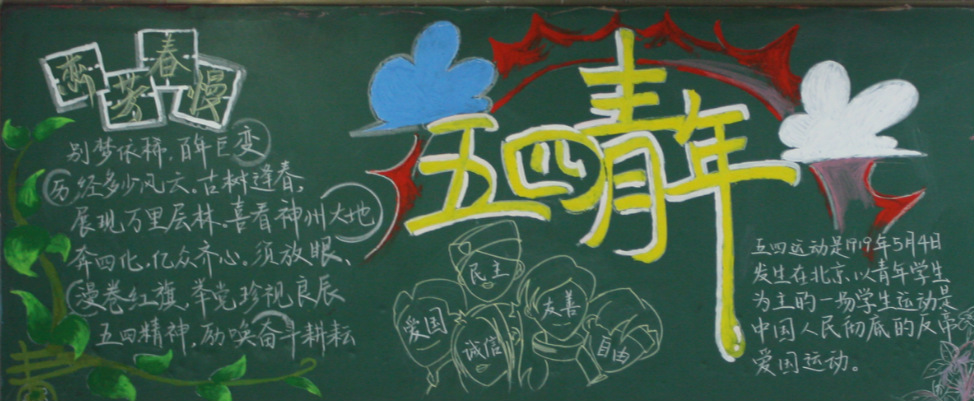 春
漫
别梦依稀,百年巨变
历经多少风云。古树逢春,
展现万里层林。喜看神州大地
奔四化,亿众齐心。须放眼、
漫卷红旗,举党珍视良辰
五四精神,励唤奋斗耕耘
五四青年
民主
爱国
诚信
友善
自由
五四运动是1919年5月4日
发生在北京,以青年学生
为主的一场学生运动是
中国人民彻底的反帝
爱国运动。